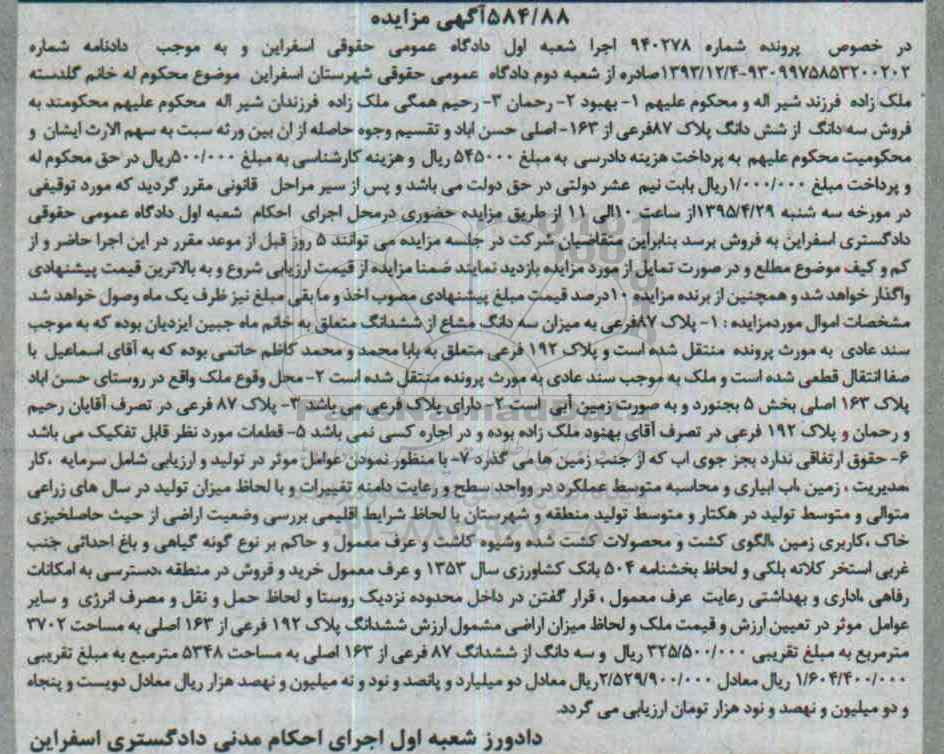 ۵۸۴/۸۸آگهی مزایده
در خصوص پرونده شماره ۹۴۰۲۷۸ اجرا شعبه اول دادگاه عمومی حقوقی اسفراین و به موجب دادنامه شماره
۹۳۰۹۹۷۵۸۵۳۲۰۰۲۰۲-۱۳۹۳/۱۲/۴صادره از شعبه دوم دادگاه عمومی حقوقی شهرستان اسفراین موضوع محکوم له خانم گلدسته
ملک زاده فرزند شیر اله و محکوم علیهم ۱- بهبود ۲- رحمان ۳- رحیم همگی ملک زاده فرزندان شیر اله محکوم علیهم محکومند به
فروش سه دانگ از شش دانگ پلاک ۸۷فرعی از ۱۶۳- اصلی حسن اباد و تقسیم وجوه حاصله از ان بین ورثه سبت به سهم الارث ایشان و
محکومیت محکوم علیهم به پرداخت هزینه دادرسی به مبلغ ۵۴۵۰۰۰ ریال و هزینه کارشناسی به مبلغ ۵۰۰/۰۰۰ریال در حق محکوم له
و پرداخت مبلغ ۱/۰۰۰/۰۰۰ریال بابت نیم عشر دولتی در حق دولت می باشد و پس از سیر مراحل قانونی مقرر گردید که مورد توقیفی
در مورخه سه شنبه ۱۳۹۵/۴/۲۹از ساعت ۱۰الی ۱۱ از طریق مزایده حضوری درمحل اجرای احکام شعبه اول دادگاه عمومی حقوقی
دادگستری اسفراین به فروش برسد بنابراین متقاضیان شرکت در جلسه مزایده می توانند ۵ روز قبل از موعد مقرر در این اجرا حاضر و از
کم و کیف موضوع مطلع و در صورت تمایل از مورد مزایده بازدید نمایند ضمنا مزایده از قیمت ارزیابی شروع و به بالاترین قیمت پیشنهادی
واگذار خواهد شد و همچنین از برنده مزایده ۱۰درصد قیمت مبلغ پیشنهادی مصوب اخذ و مابقی مبلغ نیز ظرف یک ماه وصول خواهد شد
مشخصات اموال موردمزایده : ۱- پلاک ۸۷فرعی به میزان سه دانگ مشاع از ششدانگ متعلق به خانم ماه جبین ایزدیان بوده که به موجب
سند عادی به مورث پرونده منتقل شده است و پلاک ۱۹۲ فرعی متعلق به بابا محمد و محمد کاظم حاتمی بوده که به آقای اسماعیل با
صفا انتقال قطعی شده است و ملک به موجب سند عادی به مورث پرونده منتقل شده است ۲- محل وقوع ملک واقع در روستای حسن اباد
پلاک ۱۶۳ اصلی بخش ۵ بجنورد و به صورت زمین آبی است ۲- دارای پلاک فرعی می باشد ۳- پلاک ۸۷ فرعی در تصرف آقایان رحیم
و رحمان و پلاک ۱۹۲ فرعی در تصرف آقای بهنود ملک زاده بوده و در اجاره کسی نمی باشد ۵- قطعات مورد نظر قابل تفکیک می باشد
۶- حقوق ارتفاقی ندارد بجز جوی اب که از جنب زمین ها می گذرد ۷- با منظور نمودن عوامل موثر در تولید و ارزیابی شامل سرمایه ،کار
،مدیریت ، زمین ،اب ابیاری و محاسبه متوسط عملکرد در وواحد سطح و رعایت دامنه تغییرات و با لحاظ میزان تولید در سال های زراعی
متوالی و متوسط تولید در هکتار و متوسط تولید منطقه و شهرستان با لحاظ شرایط اقلیمی بررسی وضعیت اراضی از حیث حاصلخیزی
خاک ،کاربری زمین ،الگوی کشت و محصولات کشت شده وشیوه کاشت و عرف معمول و حاکم بر نوع گونه گیاهی و باغ احداثی جنب
غربی استخر کلاته بلکی و لحاظ بخشنامه ۵۰۴ بانک کشاورزی سال ۱۳۵۳ و عرف معمول خرید و فروش در منطقه ،دسترسی به امکانات
رفاهی ،اداری و بهداشتی رعایت عرف معمول ، قرار گفتن در داخل محدوده نزدیک روستا و لحاظ حمل و نقل و مصرف انرژی و سایر
عوامل موثر در تعیین ارزش و قیمت ملک و لحاظ میزان اراضی مشمول ارزش ششدانگ پلاک ۱۹۲ فرعی از ۱۶۳ اصلی به مساحت ۳۷۰۲
مترمربع به مبلغ تقریبی ۳۲۵/۵۰۰/۰۰۰ ریال و سه دانگ از ششدانگ ۸۷ فرعی از ۱۶۳ اصلی به مساحت ۵۳۴۸ مترمبع به مبلغ تقریبی
۱/۶۰۴/۴۰۰/۰۰۰ ریال معادل ۲/۵۲۹/۹۰۰/۰۰۰ریال معادل دو میلیارد و پانصد و نود و نه میلیون و نهصد هزار ریال معادل دویست و پنجاه
و دو میلیون و نهصد و نود هزار تومان ارزیابی می گردد.
دادورز شعبه اول اجرای احکام مدنی دادگستری اسفراین